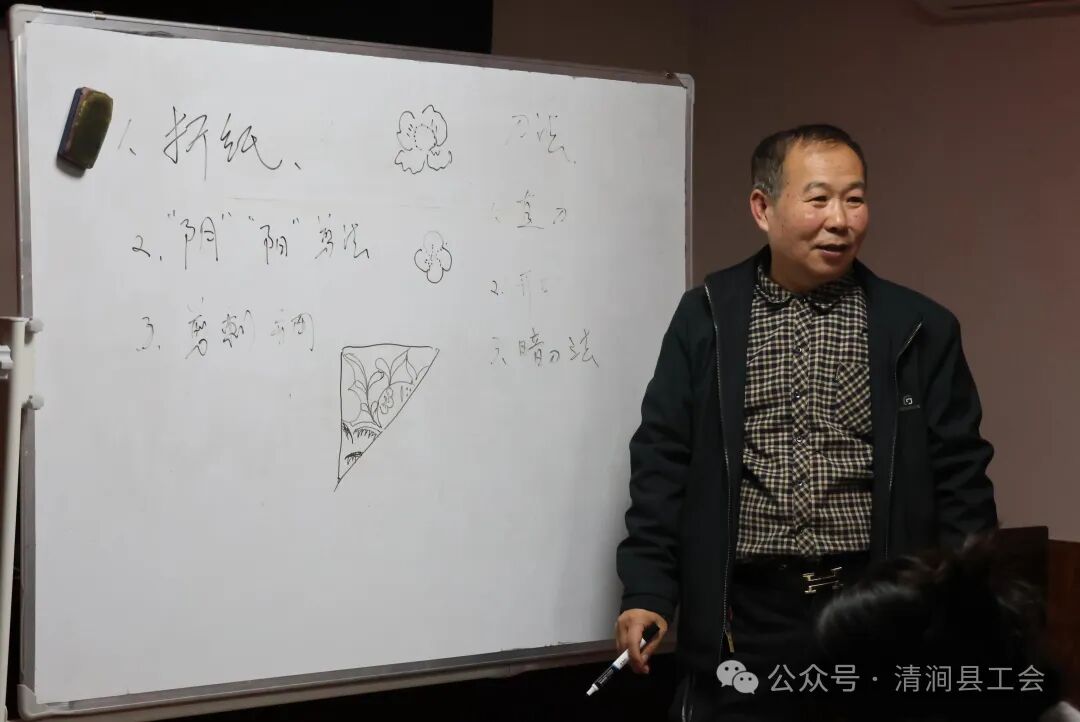 1、折纸、
2、"阴""阳"剪法
3、剪
刀法、
1、直刀
2、
3、暗刀法
公众号·清涧县工会